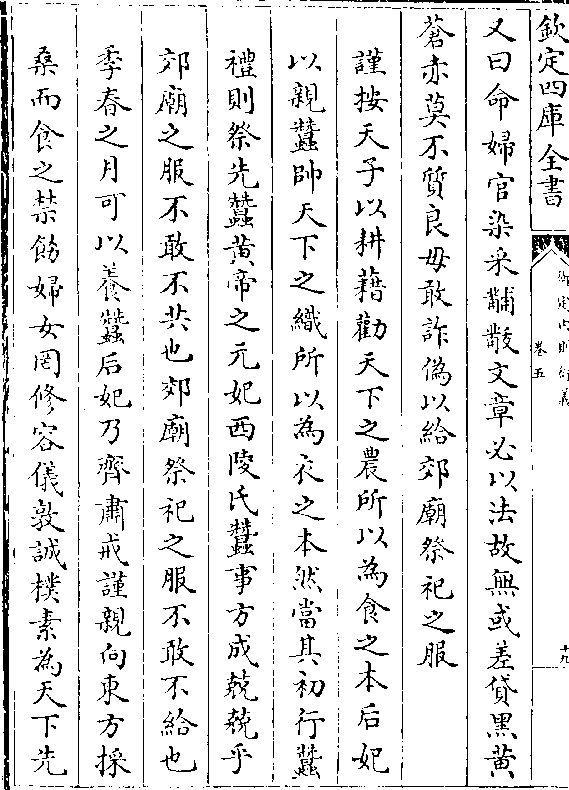 欽定四庫全書
御定內則衍義
卷五
十九
又曰命婦官染采黼黻文章必以法故無或差貸黑黄
蒼赤莫不質良毋敢詐偽以給郊廟祭祀之服
謹按天子以耕藉勸天下之農所以為食之本后妃
以親蠶帥天下之織所以為衣之本然當其初行蠶
禮則祭先蠶黄帝之元妃西陵氏蠶事方成兢兢乎
郊廟之服不敢不共也郊廟祭祀之服不敢不給也
季春之月可以養蠶后妃乃齊肅戒謹親向東方採
桑而食之禁飭婦女罔修容儀敦誠樸素為天下先